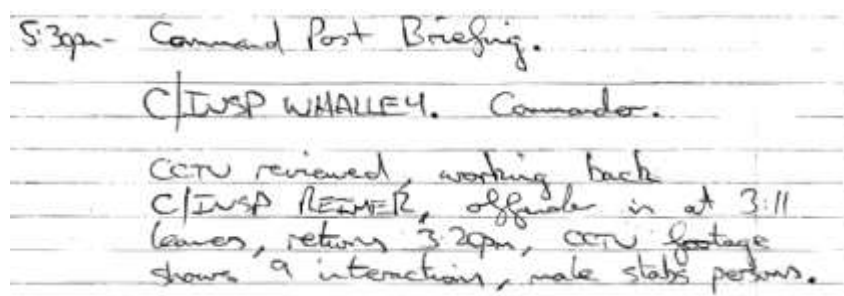 5:30pm- Command Post Briefing.
C/INSP WHALLEY. Commander.
CCTV reviewed, working back
C/INSP REIMER, offender in at 3:11
leaves, returns 3:20pm, CCTV footage
shows 9 interactions, male stabs persons.